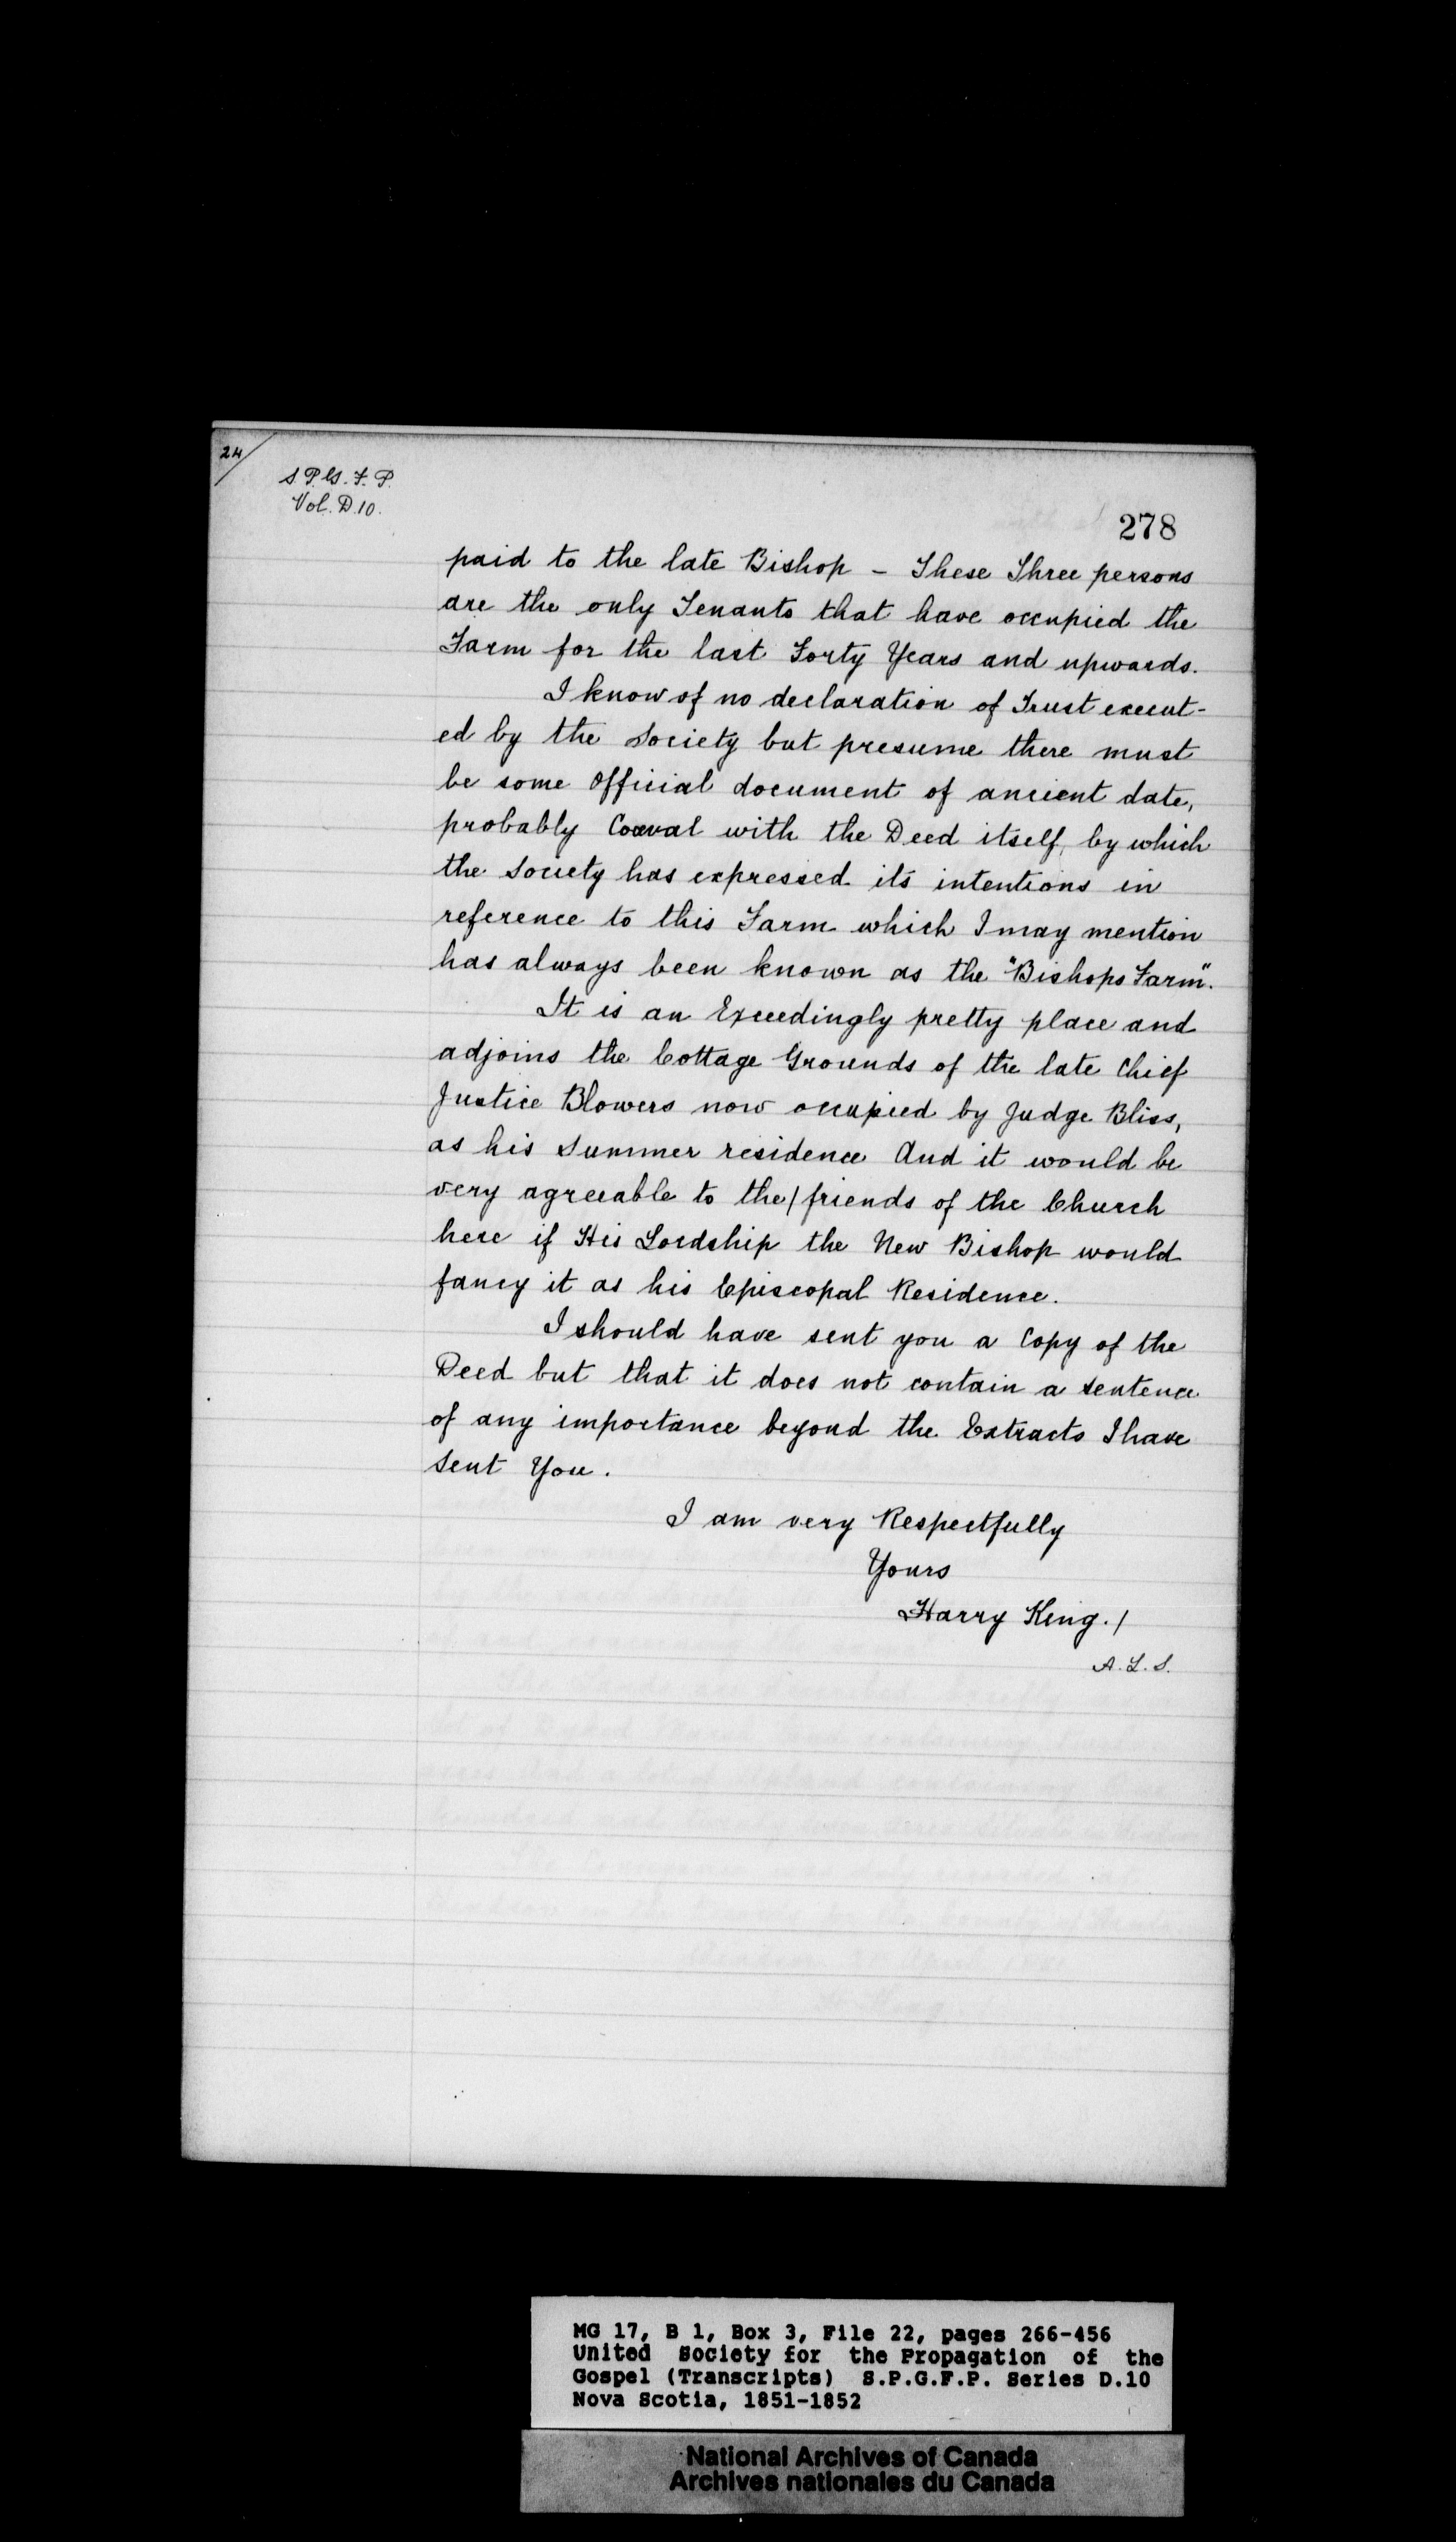 24/
S.P.G.F.P.
Vol. D.10.
278
paid to the late Bishop – These Three persons
are the only Tenants that have occupied the
Farm for the last Forty Years and upwards.
I know of no declaration of Trust execut-
ed by the Society but presume there must
be some Official document of ancient date,
probably Coeval with the Deed itself, by which
the Society has expressed its intentions in
reference to this Farm which I may mention
has always been known as the "Bishops Farm".
It is an Exceedingly pretty place and
adjoins the Cottage Grounds of the late Chief
Justice Blowers now occupied by Judge Bliss,
as his Summer residence And it would be
very agreeable to the/friends of the Church
here if His Lordship the New Bishop would
fancy it as his Episcopal Residence.
I should have sent you a Copy of the
Deed but that it does not contain a sentence
of any importance beyond the Extracts I have
sent You.
I am very Respectfully
Yours
Harry King./
A.L.S.
MG 17, B 1, Box 3, File 22, pages 266-456
United Society for the Propagation of the
Gospel (Transcripts) S.P.G.F.P. Series D.10
Nova Scotia, 1851-1852
National Archives of Canada
Archives nationales du Canada